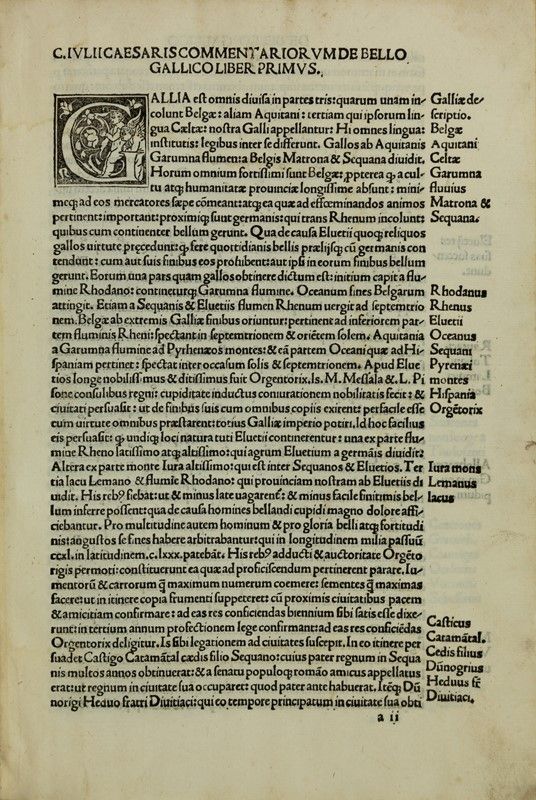 C. IVLII CAESARIS COMMENTARIORVM DE BELLO
GALLICO LIBER PRIMVS.
GALLIA est omnis diuisa in partes tris: quarum unam in‐
colunt Belgæ: aliam Aquitani: tertiam qui ipsorum lin
gua Cæltæ: nostra Galli appellantur: Hi omnes lingua:
institutis: legibus inter se differunt. Gallos ab Aquitanis
Garumna flumen: a Belgis Matrona & Sequana diuidit.
Horum omnium fortissimi sunt Belgæ: ꝓpterea ꝙ a cul‐
tu atꝗ humanitate prouinciæ longissime absunt: mini‐
meꝗ ad eos mercatores sæpe cōmeant: atꝗ ea quæ ad effœminandos animos
pertinent: important: proximiꝗ sunt germanis: qui trans Rhenum incolunt:
quibus cum continenter bellum gerunt. Qua de causa Eluetii quoꝗ reliquos
gallos uirtute pręcedunt: ꝙ fere quottidianis bellis præliisꝗ cū germanis con
tendunt: cum aut suis finibus eos prohibent: aut ipsi in eorum finibus bellum
gerunt. Eorum una pars quam gallos obtinere dictum est: initium capit a flu‐
mine Rhodano: contineturꝗ Garumna flumine. Oceanum fines Belgarum
attingit. Etiam a Sequanis & Eluetiis flumen Rhenum uergit ad septemtrio
nem. Belgæ ab extremis Galliæ finibus oriuntur: pertinent ad inferiorem par‐
tem fluminis Rheni: spectant in septemtrionem & oriētem solem. Aquitania
a Garumna flumine ad Pyrhenæos montes: & eā partem Oceani quæ ad Hi‐
spaniam pertinet: spectat inter occasum solis & septemtrionem. Apud Elue
tios longe nobilissimus & ditissimus fuit Orgentorix. Is. M. Messala & L. Pi
sone consulibus regni: cupiditate inductus coniurationem nobilitatis fecit: &
ciuitati persuasit: ut de finibus suis cum omnibus copiis exirent: perfacile esse
cum uirtute omnibus præstarent: totius Galliæ imperio potiri. Id hoc facilius
eis persuasit: ꝙ undiꝗ loci natura tuti Eluetii continerentur: una ex parte flu‐
mine Rheno latissimo atꝗ altissimo: qui agrum Eluetium a germanis diuidit:
Altera ex parte monte Iura altissimo: qui est inter Sequanos & Eluetios. Ter
tia lacu Lemano & flumīe Rhodano: qui prouinciam nostram ab Eluetiis di
uidit. His reb⁹ fiebat: ut & minus late uagarent᷑: & minus facile finitimis bel‐
lum inferre possent: qua de causa homines bellandi cupidi magno dolore affi‐
ciebantur. Pro multitudine autem hominum & pro gloria belli atꝗ fortitudi
nis: angustos se fines habere arbitrabantur: qui in longitudinem milia passuū
ccxl. in latitudinem. c. lxxx. patebāt. His reb⁹ adducti & auctoritate Orgēto
rigis permoti: constituerunt ea quæ ad proficiscendum pertinerent parare. Iu‐
mentorū & carrorum ꝗ̄ maximum numerum coemere: sementes ꝗ̄ maximas
facere: ut in itinere copia frumenti suppeteret: cū proximis ciuitatibus pacem
& amicitiam confirmare: ad eas res conficiendas biennium sibi satis esse dixe‐
runt: in tertium annum profectionem lege confirmant: ad eas res conficiēdas
Orgentorix deligitur. Is sibi legationem ad ciuitates suscepit. In eo itinere per
suadet Castigo Catamātal cædis filio Sequano: cuius pater regnum in Sequa
nis multos annos obtinuerat: & a senatu populoꝗ romāo amicus appellatus
erat: ut regnum in ciuitate sua occuparet: quod pater ante habuerat. Itēꝗ Dū
norigi Heduo fratri Diuitiaci: qui eo tempore principatum in ciuitate sua obti
a ii
Galliæ de‐
scriptio.
Belgæ
Aquitani
Celtæ
Garumna
fluuius
Matrona &
Sequana.
Rhodanus
Rhenus
Eluetii
Oceanus
Sequani
Pyrenæi
montes
Hispania
Orgētorix
Iura mons
Lemanus
lacus
Casticus
Catamātal.
Cedis filius
Dūnogrius
Heduus fr̄
Diuitiaci.